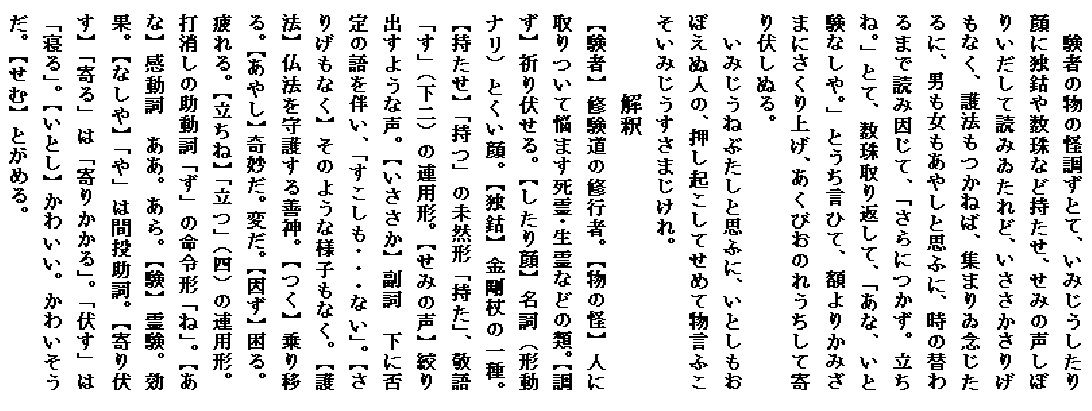 験者の物の怪調ずとて、いみじうしたり
顔に独鈷や数珠など持たせ、せみの声しぼ
りいだして読みゐたれど、いささかさりげ
もなく、護法もつかねば、集まりゐ念じた
るに、男も女もあやしと思ふに、時の替わ
るまで読み困じて、「さらにつかず。立ち
ね。」とて、数珠取り返して、「あな、いと
験なしや。」とうち言ひて、額よりかみざ
まにさくり上げ、あくびおのれうちして寄
り伏しぬる。
いみじうねぶたしと思ふに、いとしもお
ぼえぬ人の、押し起こしてせめて物言ふこ
そいみじうすさまじけれ。
解釈
【験者】修験道の修行者。【物の怪】人に
取りついて悩ます死霊・生霊などの類。【調
ず】祈り伏せる。【したり顔】名詞（形動
ナリ）とくい顔。【独鈷】金剛杖の一種。
【持たせ】「持つ」の未然形「持た」、敬語
「す」（下二）の連用形。【せみの声】絞り
出すような声。【いささか】副詞　下に否
定の語を伴い、「すこしも・・・ない」。【さ
りげもなく】そのような様子もなく。【護
法】仏法を守護する善神。【つく】乗り移
る。【あやし】奇妙だ。変だ。【困ず】困る。
疲れる。【立ちね】「立つ」（四）の連用形。
打消しの助動詞「ず」の命令形「ね」。【あ
な】感動詞　ああ。あら。【験】霊験。効
果。【なしや】「や」は間投助詞。【寄り伏
す】「寄る」は「寄りかかる」。「伏す」は
「寝る」。【いとし】かわいい。かわいそう
だ。【せむ】とがめる。